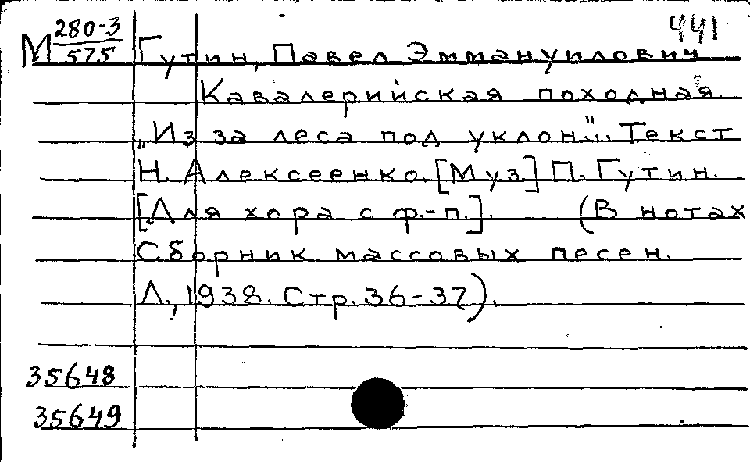 441
М 280-3/575 Гутин, Павел Эммануилович
Кавалерийская походная.
"Из за леса под уклон". Текст
Н. Алексеенко. [Муз.] П. Гутин.
[Для хора с ф.-п.]. (В нотах
Сборник массовых песен.
Л., 1938. Стр. 36-37).
35648
35649